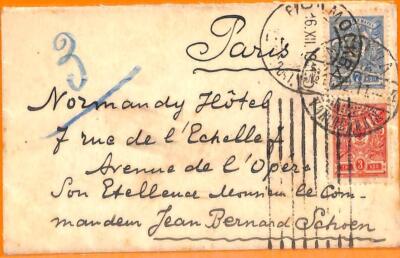 3
Paris
Normandy Hôtel
7 rue de l'Echelle
Avenue de l'Opéra
Son Exellence Monsieur le Com-
mandeur Jean Bernard Schoen
МОСКВА
16.XII
3